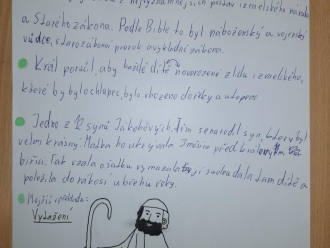 z nejvýznamnejších postav izraelského národa
a Starého zákona. Podle Bible to byl náboženský a vojenský
vůdce, starozákonní prorok a vykladní zákona.
Král poručil, aby každé dítě novorozené z lidu izraelského,
které by bylo chlapec, bylo vhozeno do řeky a utopeno
Jedno z 12 synů Jákobových, se narodil syn, který byl
velmi krásný. Matka ho ukrývala 3 měsíce před
Tak vzala ošatku vymazala ji a dala tam dítě a
položila do rákosí u břehu řeky.
Mojžíš
Vyhnání